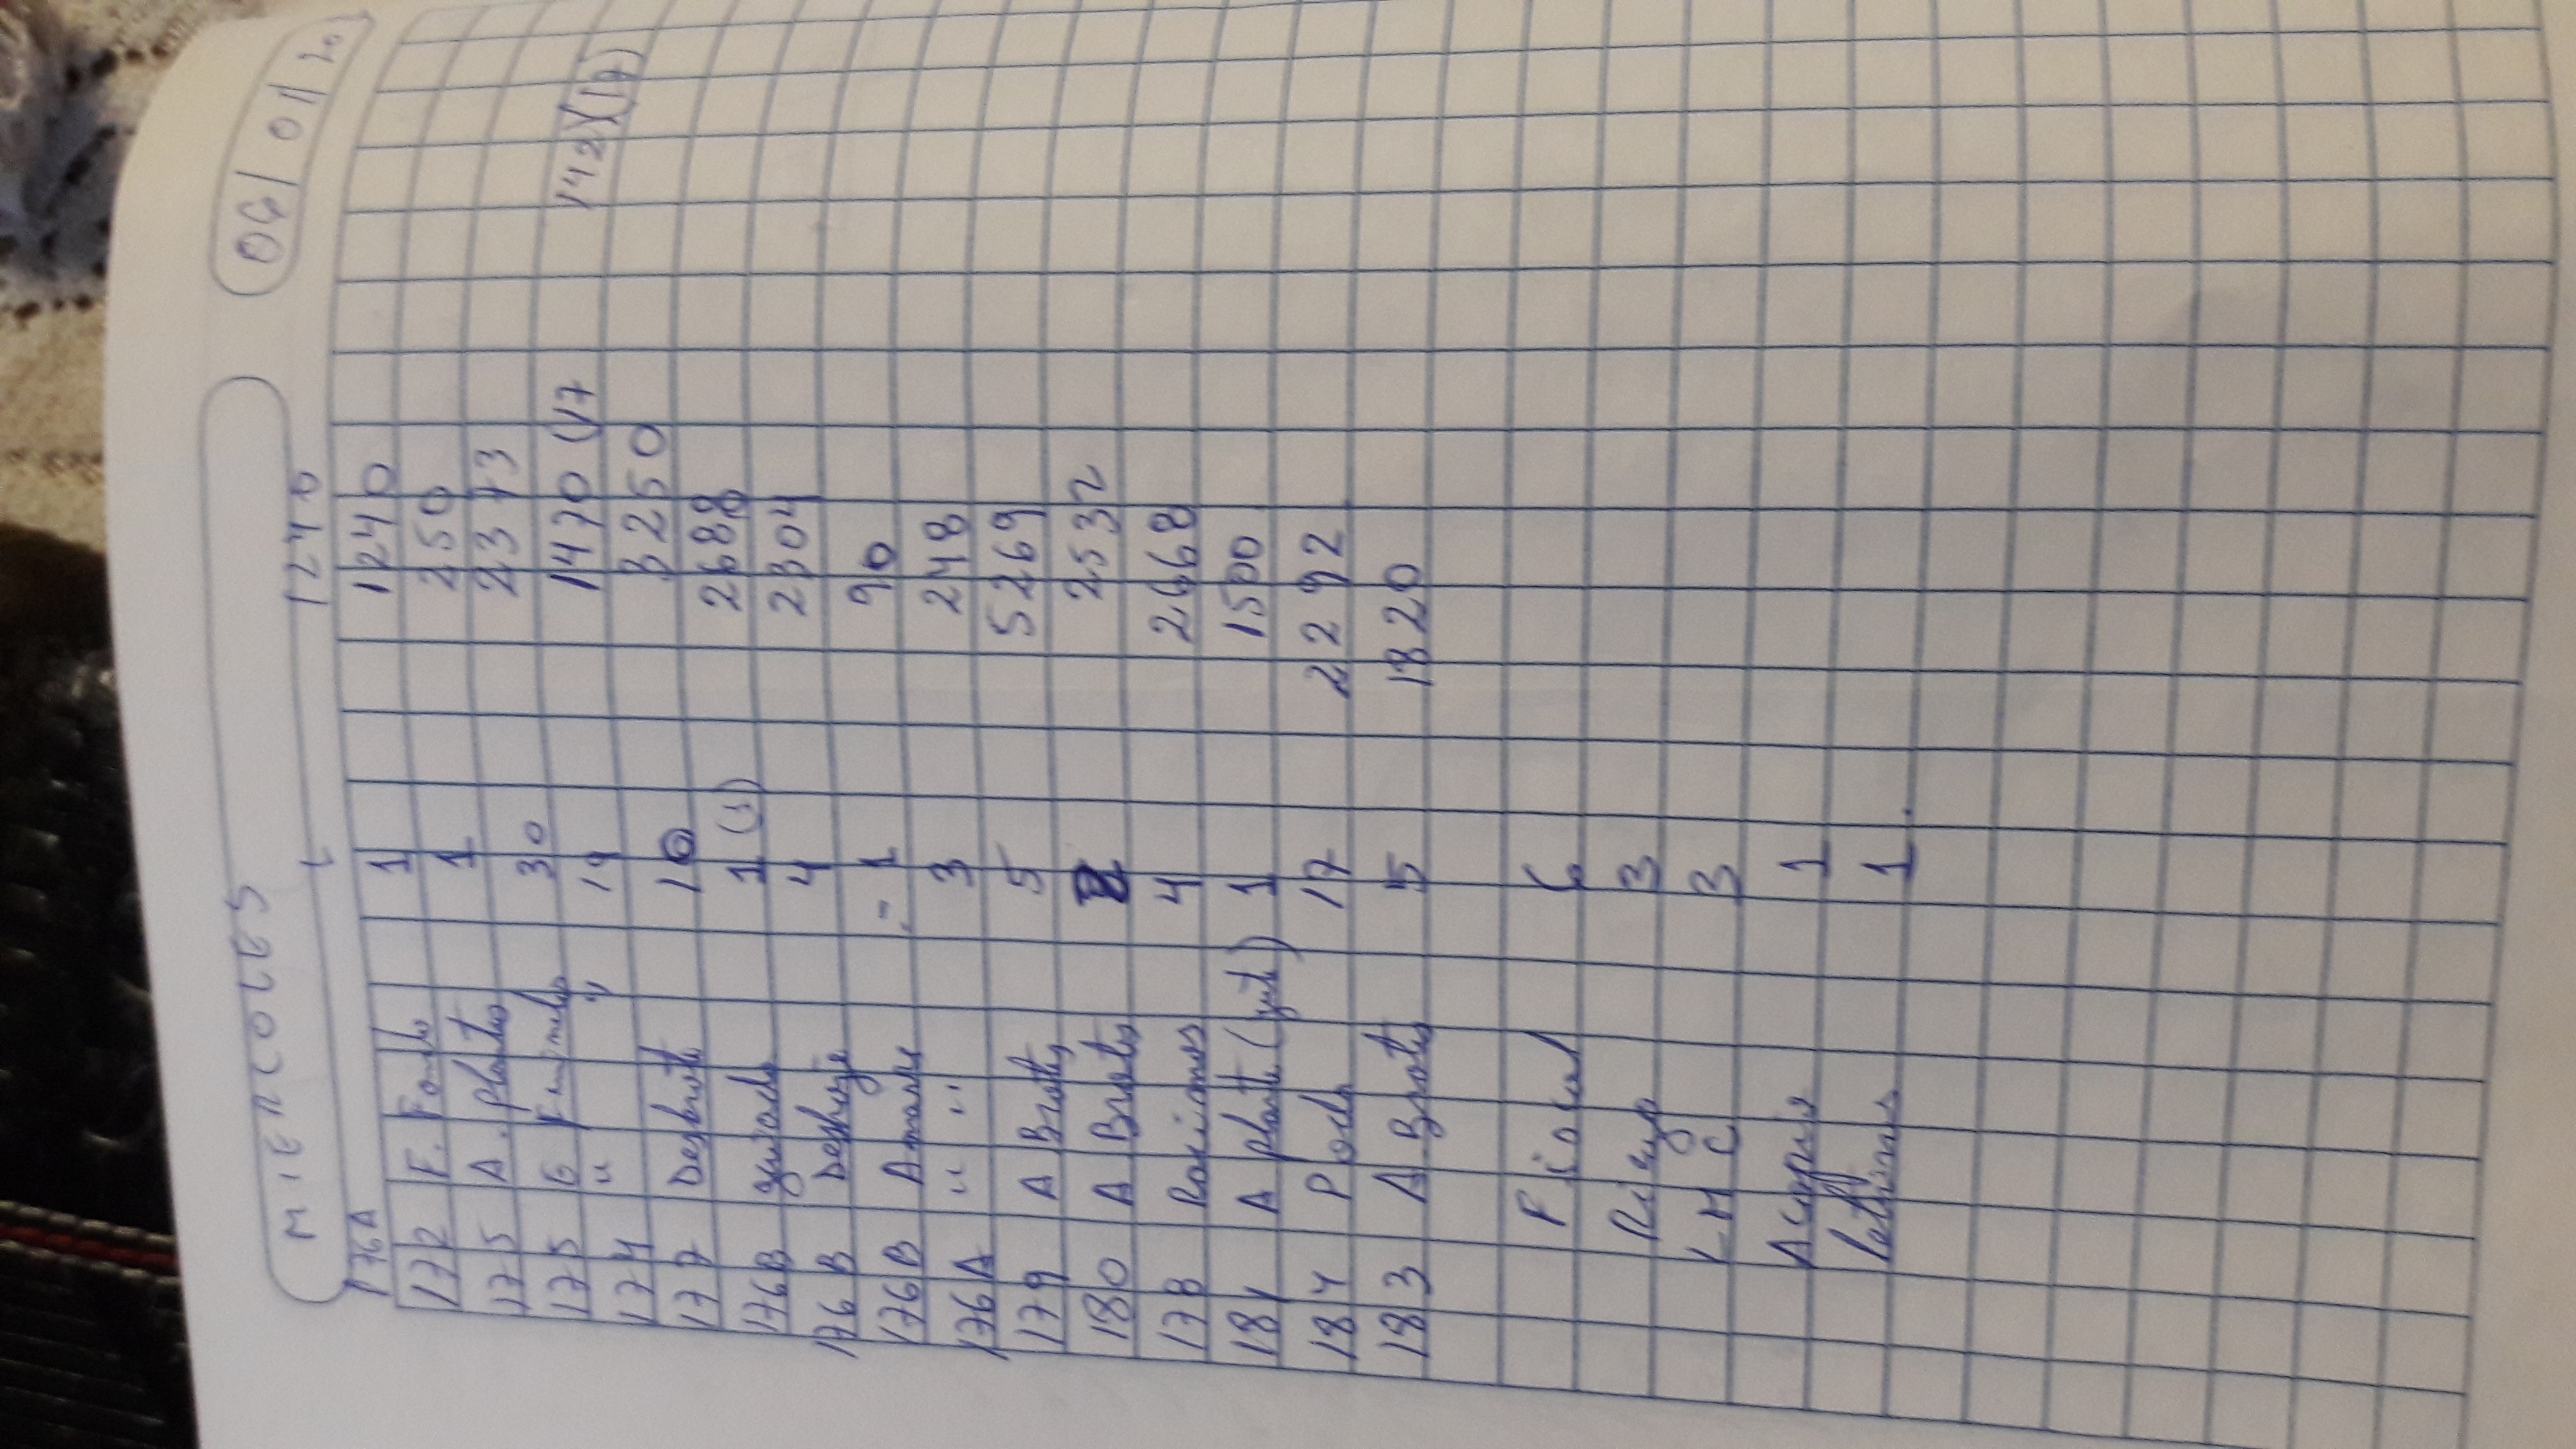 MIERCOLES 06/01/20
176A 1 1240
172 F. Fondo 1 1240
175 A. plantas 1 250
175 E Femineles 30 2373
174 " " 19 1470 (17 142)(17)
177 Desbrote 10 3250
176B guiado 1 (1) 2688
176B Deshoje 4 2304
176B Amarre - 1 90
176A " " 3 248
179 A Brotes 5 5269
180 A Brotes 2 2532
178 Racimos 4 2668
181 A plante ( ) 1 1500
184 Poda 17 2292
183 A. Brotes 5 1820
Fiscal 6
Riego 3
LMC 3
Acopio 1
letrinas 1.